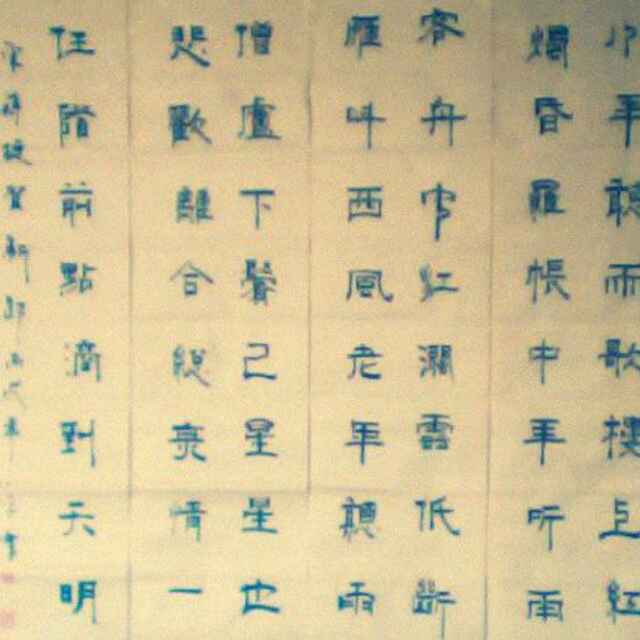 年聽雨歌樓上紅
燭昏羅帳中年听雨
客舟中江濶雲低斷
雁叫西風老年聽雨
僧廬下鬢已星星也
悲歡離合總無情一
任階前點滴到天明